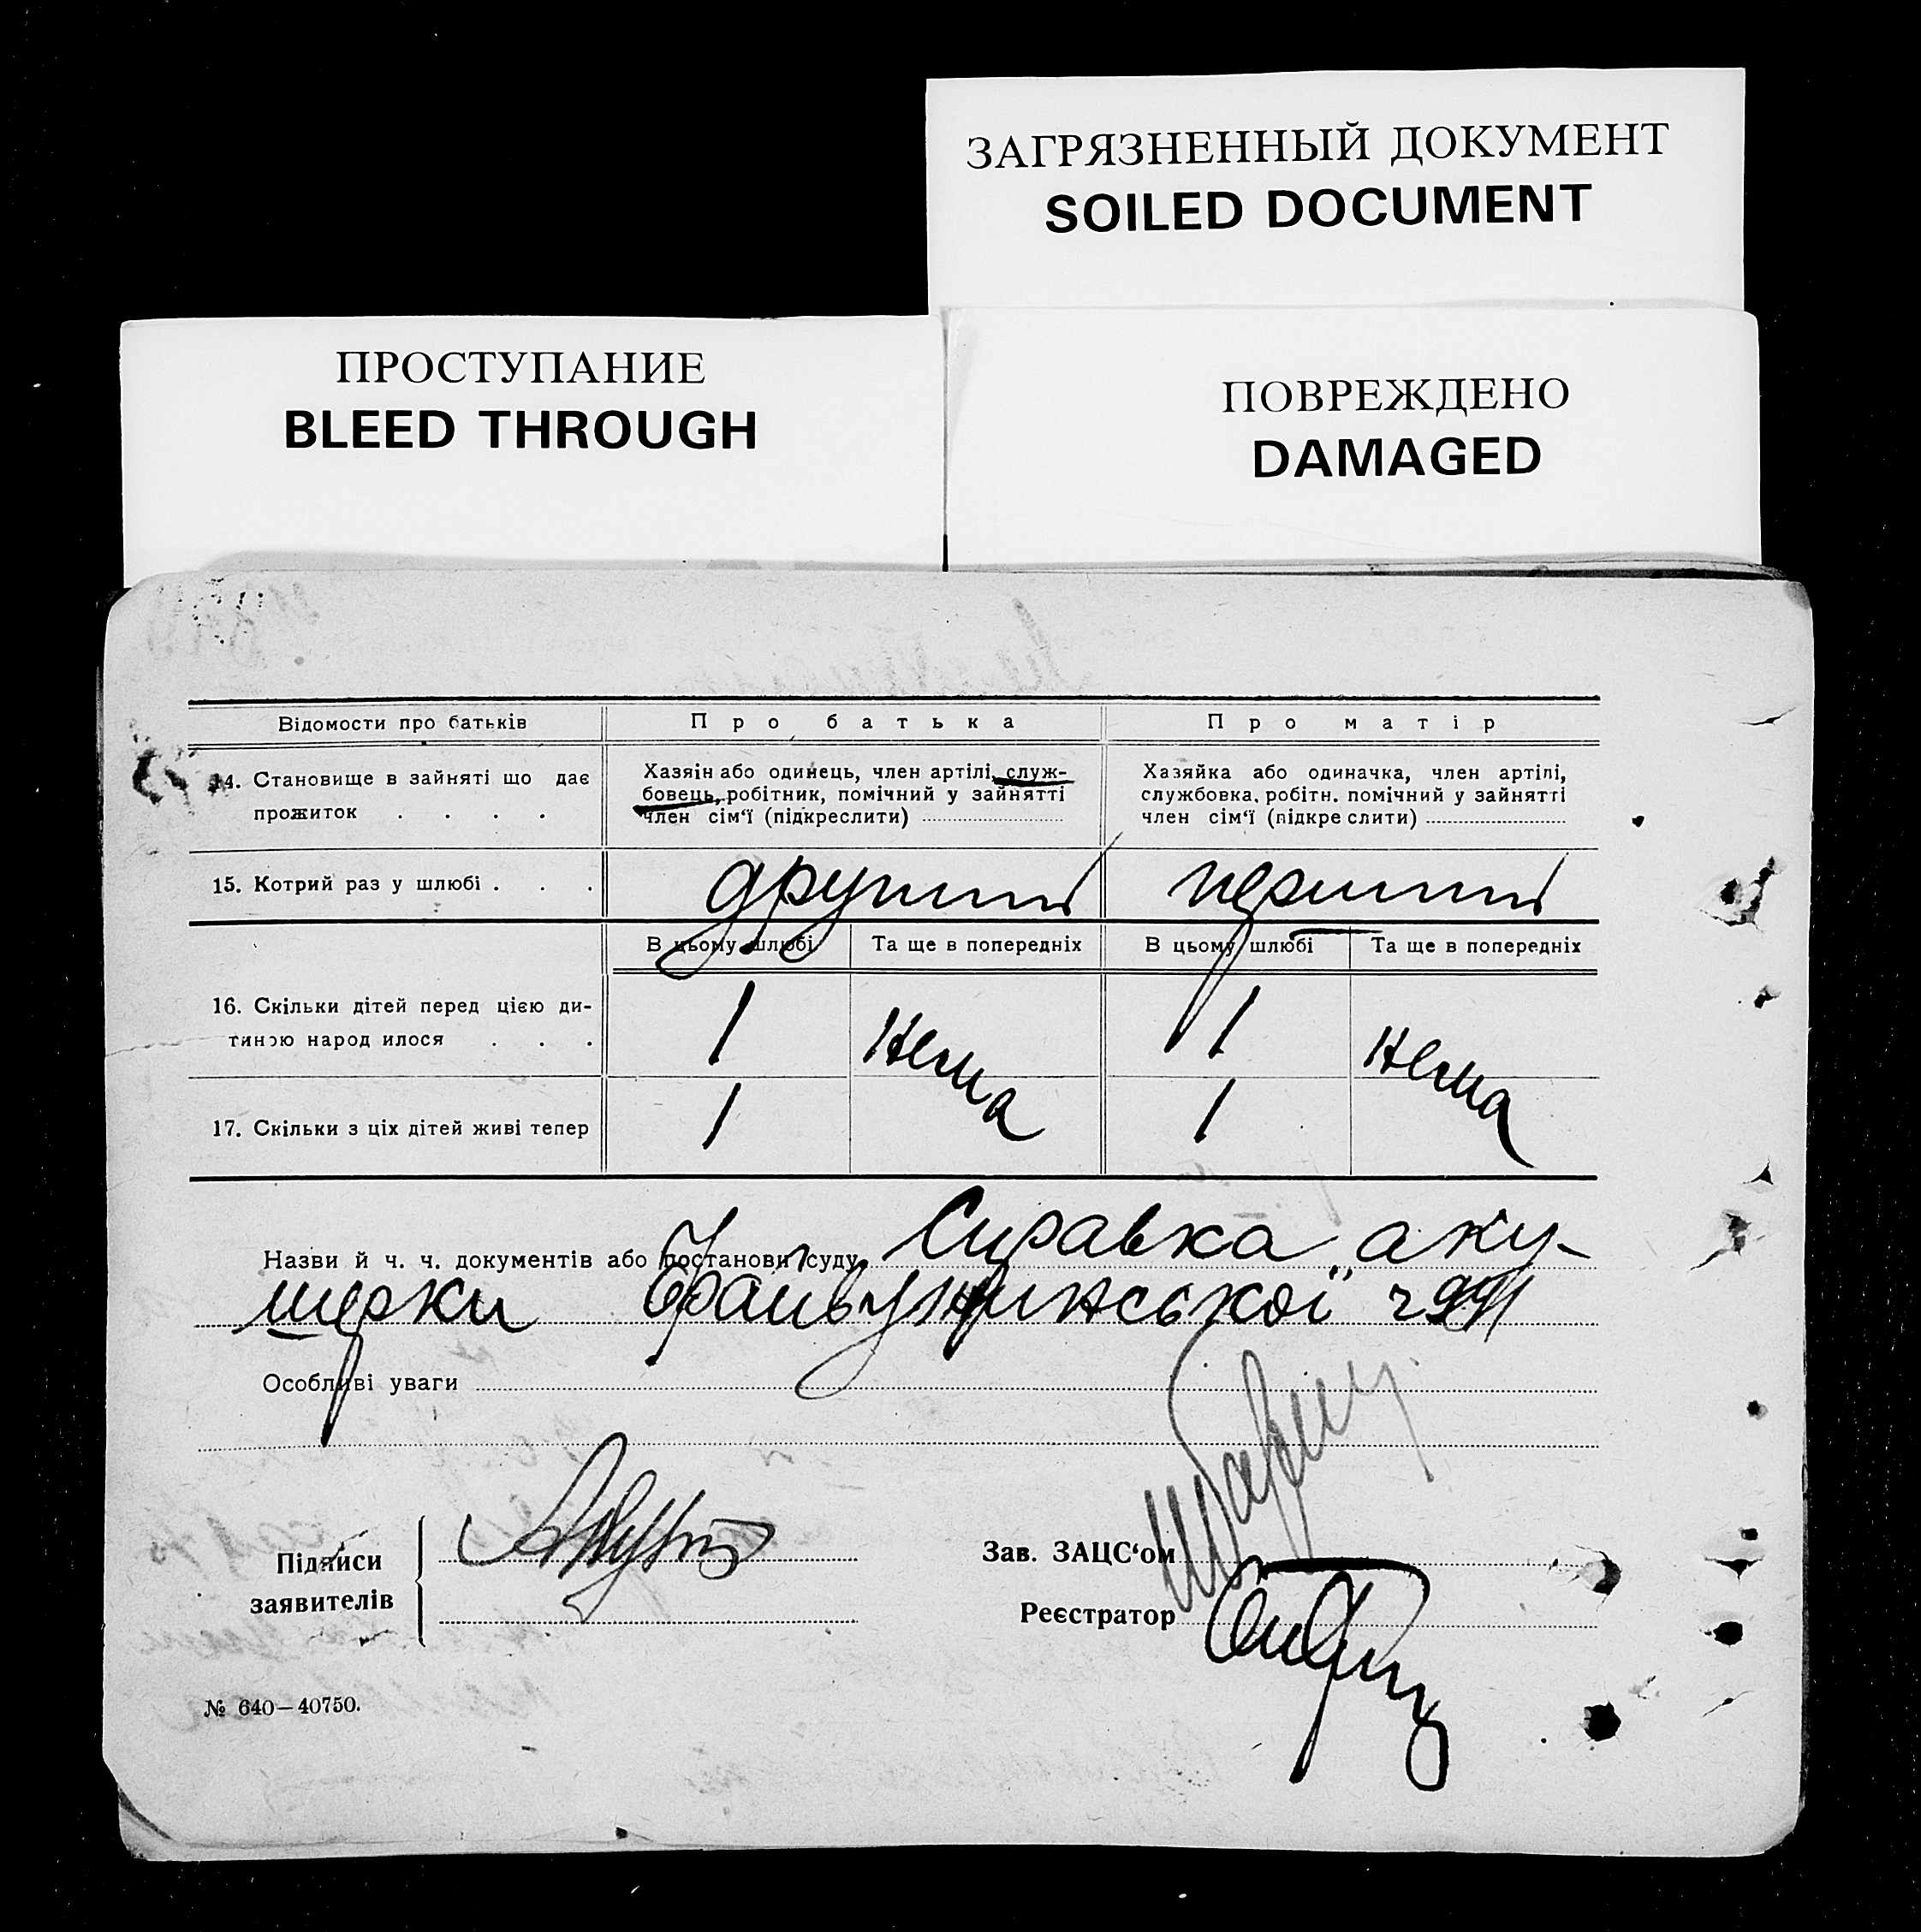 ЗАГРЯЗНЕННЫЙ ДОКУМЕНТ
SOILED DOCUMENT
ПРОСТУПАНИЕ
BLEED THROUGH
ПОВРЕЖДЕНО
DAMAGED
Відомости про батьків
Про батька
Про матір
14. Становище в зайняті що дає
прожиток . . . .
Хазяін або одинець, член артілі, служ-
бовець, робітник, помічний у зайнятті
член сім'ї (підкреслити)
Хазяйка або одиначка, член артілі,
службовка, робітн. помічний у зайнятті
член сім'ї (підкреслити)
15. Котрий раз у шлюбі . . .
другий
перший
В цьому шлюбі
Та ще в попередніх
В цьому шлюбі
Та ще в попередніх
16. Скільки дітей перед цією ди-
тиною народилося . . .
1
Нема
1
Нема
17. Скільки з ціх дітей живі тепер
1
1
Назви й ч. ч. документів або постанови суду Справка аку-
шерки
Особливі уваги
Підписи
заявителів
Зав. ЗАЦС'ом
Реєстратор
№ 640—40750.